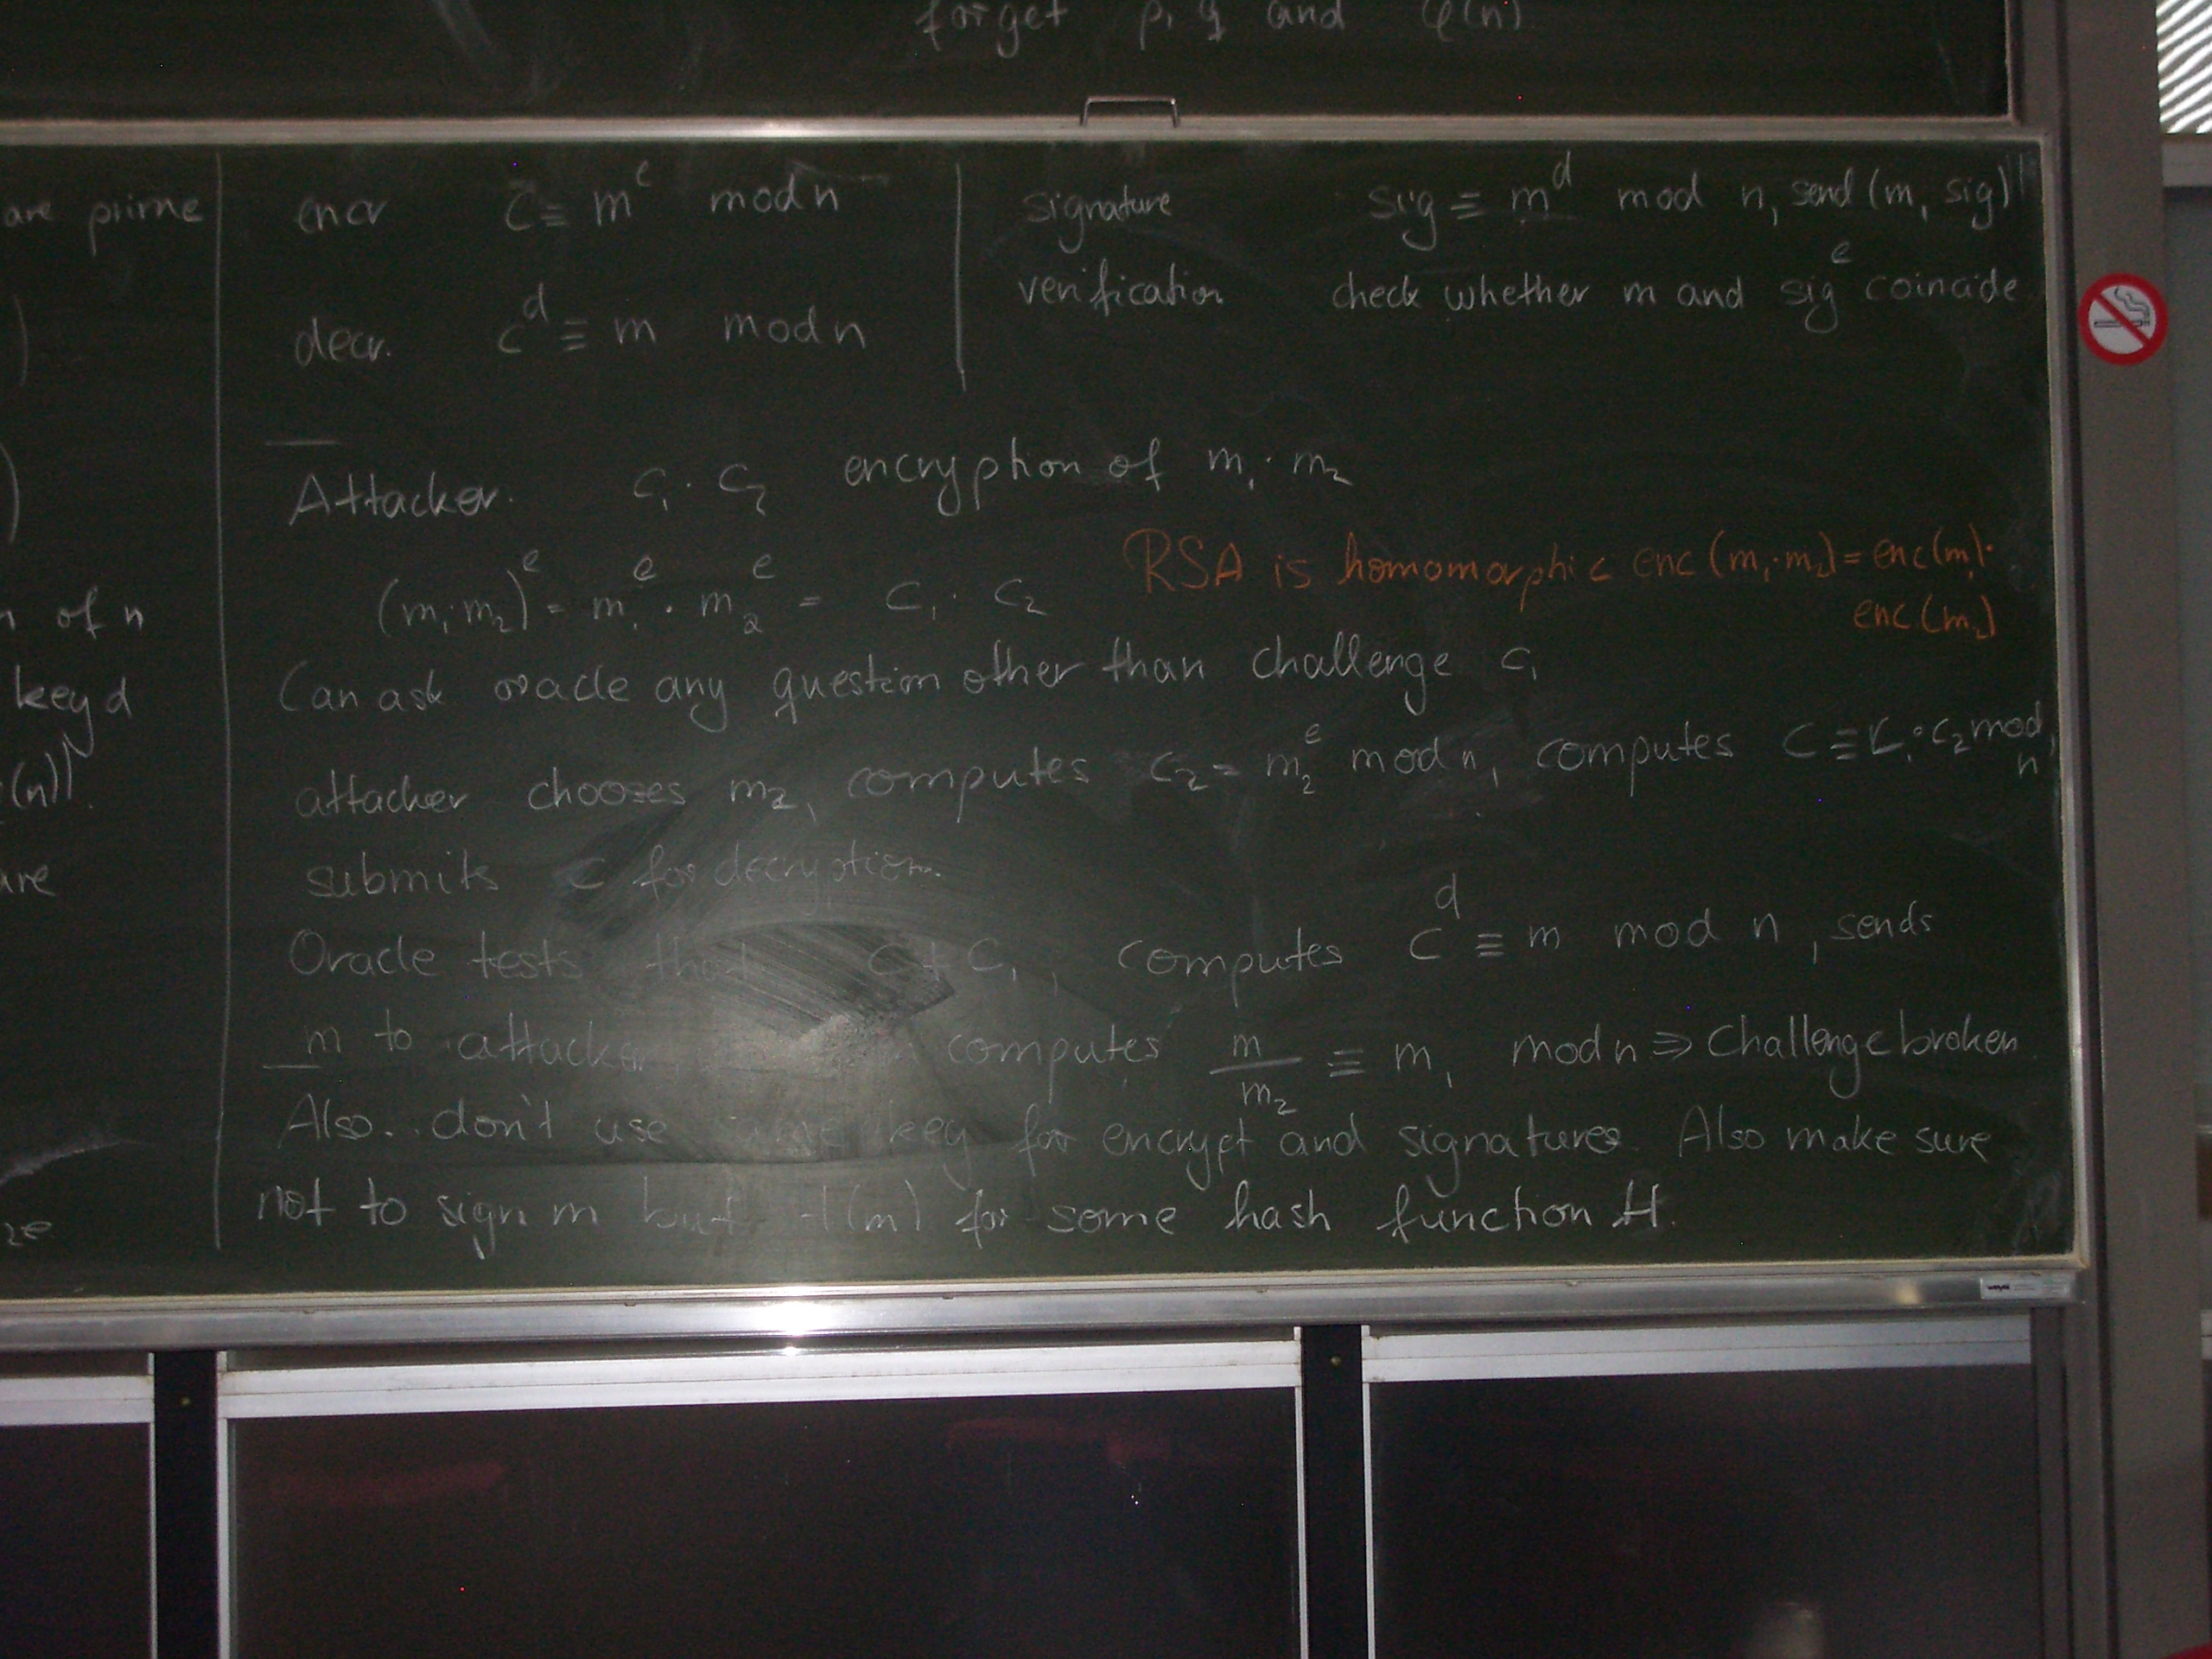 forget p, q and φ(n)
are prime
of n
key d
(n))
are
encr c ≡ m^e mod n
decr. c^d ≡ m mod n
signature sig ≡ m^d mod n, send (m, sig)
verification check whether m and sig^e coincide
Attacker. c₁ · c₂ encryption of m₁ · m₂
(m₁·m₂)^e = m₁^e · m₂^e = c₁ · c₂
RSA is homomorphic enc(m₁·m₂) = enc(m₁)·
enc(m₂)
Can ask oracle any question other than challenge c₁
attacker chooses m₂, computes c₂ = m₂^e mod n, computes c ≡ c₁·c₂ mod
n
submits c for decryption.
Oracle tests that c ≠ c₁, computes c^d ≡ m mod n, sends
m to attacker computes m/m₂ ≡ m₁ mod n ⇒ Challenge broken
Also.. don't use same key for encrypt and signatures. Also make sure
not to sign m but H(m) for some hash function H.